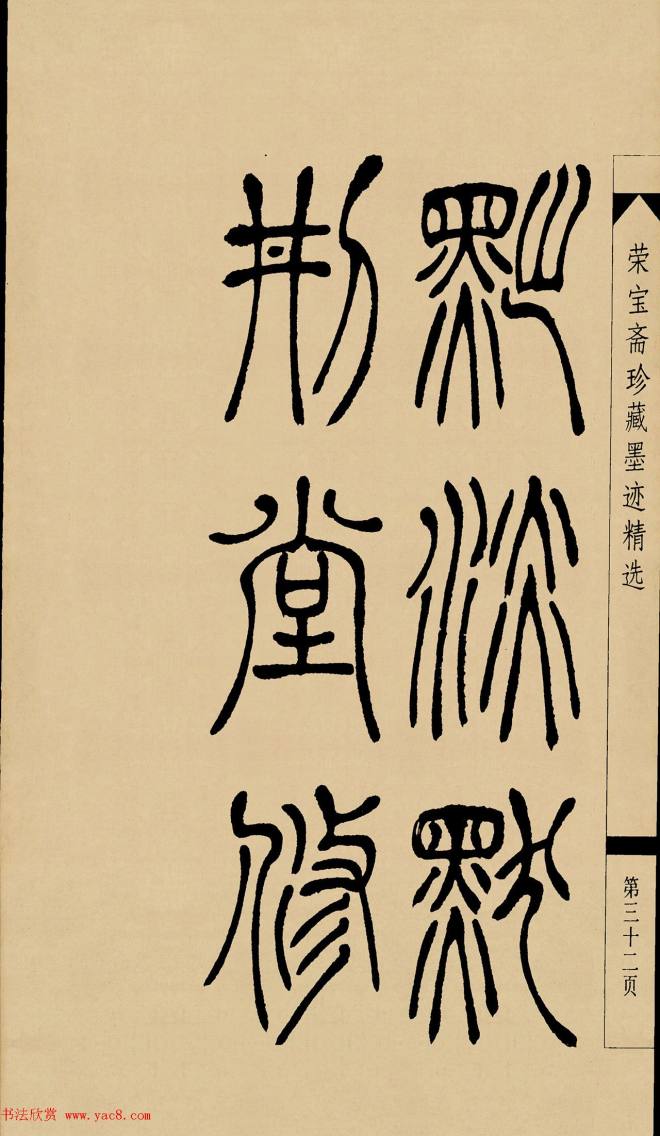 荣宝斋珍藏墨迹精选
第三十二页
淡默
刑堂修
书法欣赏 www.yac8.com